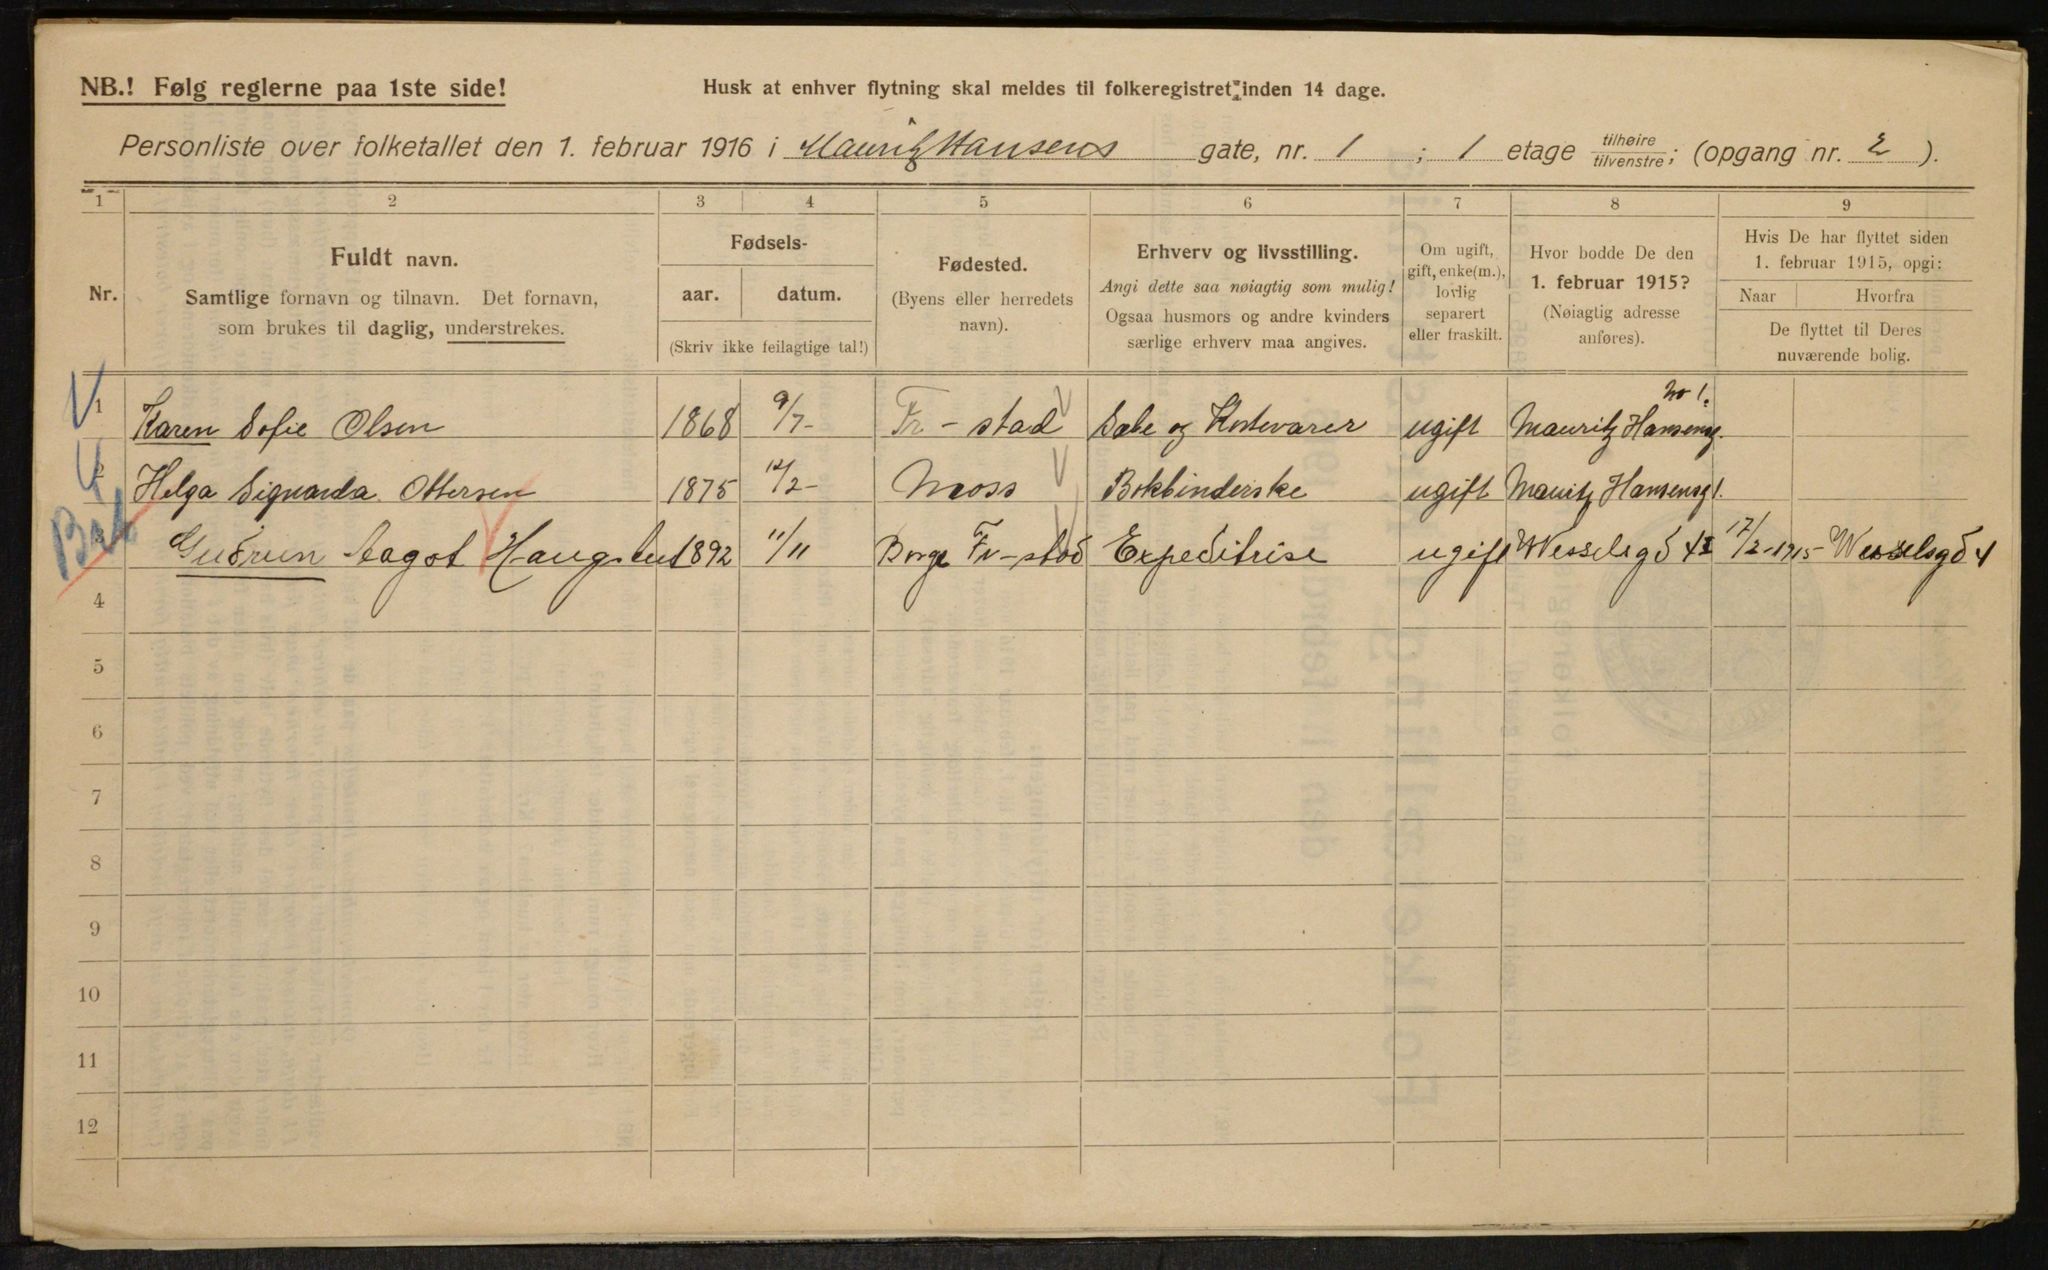 NB.! Følg reglerne paa 1ste side!
Husk at enhver flytning skal meldes til folkeregistret inden 14 dage.
Personliste over folketallet den 1. februar 1916 i Mauritz Hansens gate, nr. 1 ; 1 etage tilhøire/tilvenstre; (opgang nr. 2 ).
1 2 3 4 5 6 7 8 9
Nr.
Fuldt navn.
Samtlige fornavn og tilnavn. Det fornavn,
som brukes til daglig, understrekes.
Fødsels-
aar. datum.
(Skriv ikke feilagtige tal!)
Fødested.
(Byens eller herredets
navn).
Erhverv og livsstilling.
Angi dette saa nøiagtig som mulig!
Ogsaa husmors og andre kvinders
særlige erhverv maa angives.
Om ugift,
gift, enke(m.),
lovlig
separert
eller fraskilt.
Hvor bodde De den
1. februar 1915?
(Nøiagtig adresse
anføres).
Hvis De har flyttet siden
1. februar 1915, opgi:
Naar Hvorfra
De flyttet til Deres
nuværende bolig.
1 Karen Sofie Olsen 1868 9/7- Fr-stad Sæbe og Kostevarer ugift Mauritz Hanseng. no 1.
2 Helga Signarda Ottersen 1875 12/2- Moss Bokbinderske ugift Mauritz Hansensg 1.
3 Gudrun Aagot 1892 11/11 Borge Fr-stad Expeditrise ugift Wesselsgd 4 17/2-1915- Wesselsgd 4
4
5
6
7
8
9
10
11
12